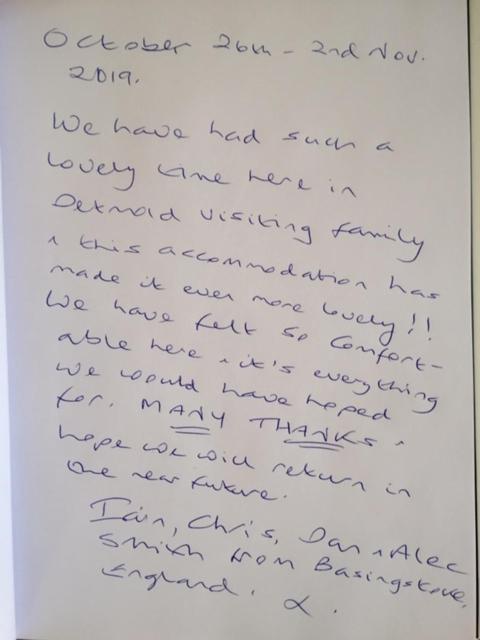 October 26th - 2nd Nov.
2019.
We have had such a
lovely time here in
Detmold visiting family
& this accommodation has
made it even more lovely!!
We have felt so comfort-
able here & it's everything
we would have hoped
for. MANY THANKS &
hope we will return in
the near future.
Iain, Chris, Dan & Alec
Smith from Basingstoke,
England. x.